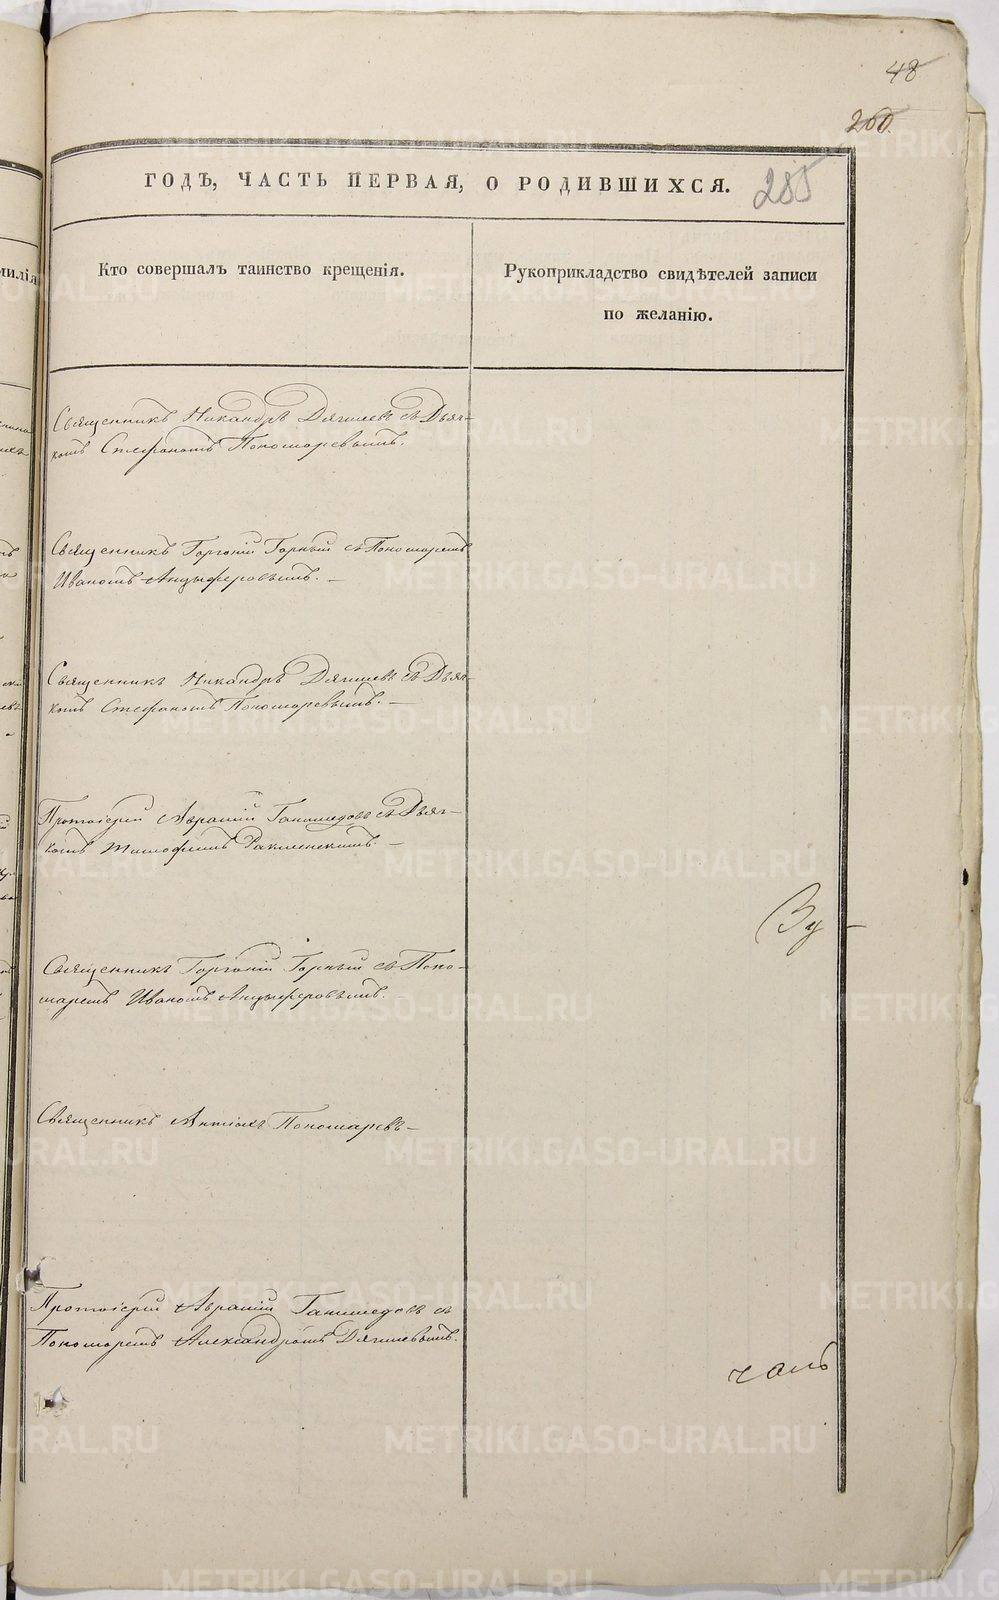 48
260.
ГОДЪ, ЧАСТЬ ПЕРВАЯ, О РОДИВШИХСЯ.
285
Кто совершалъ таинство крещенія.
Рукоприкладство свидѣтелей записи
по желанію.
Священникъ Никандръ Дягилевъ съ Дьяч-
комъ Стефаномъ Пономаревымъ.
Священникъ Горгоній Горный съ Пономаремъ
Иваномъ Анцыферовымъ. —
Священникъ Никандръ Дягилевъ съ Дьяч-
комъ Стефаномъ Пономаревымъ. —
Протоіерей Авраамій Ганимедовъ съ Дьяч-
комъ Тимофеемъ —
Зу —
Священникъ Горгоній Горный съ Поно-
маремъ Иваномъ Анцыферовымъ. —
Священникъ Антіохъ Пономаревъ —
Протоіерей Авраамій Ганимедовъ съ
Пономаремъ Александромъ Дягилевымъ.
METRIKI.GASO-URAL.RU